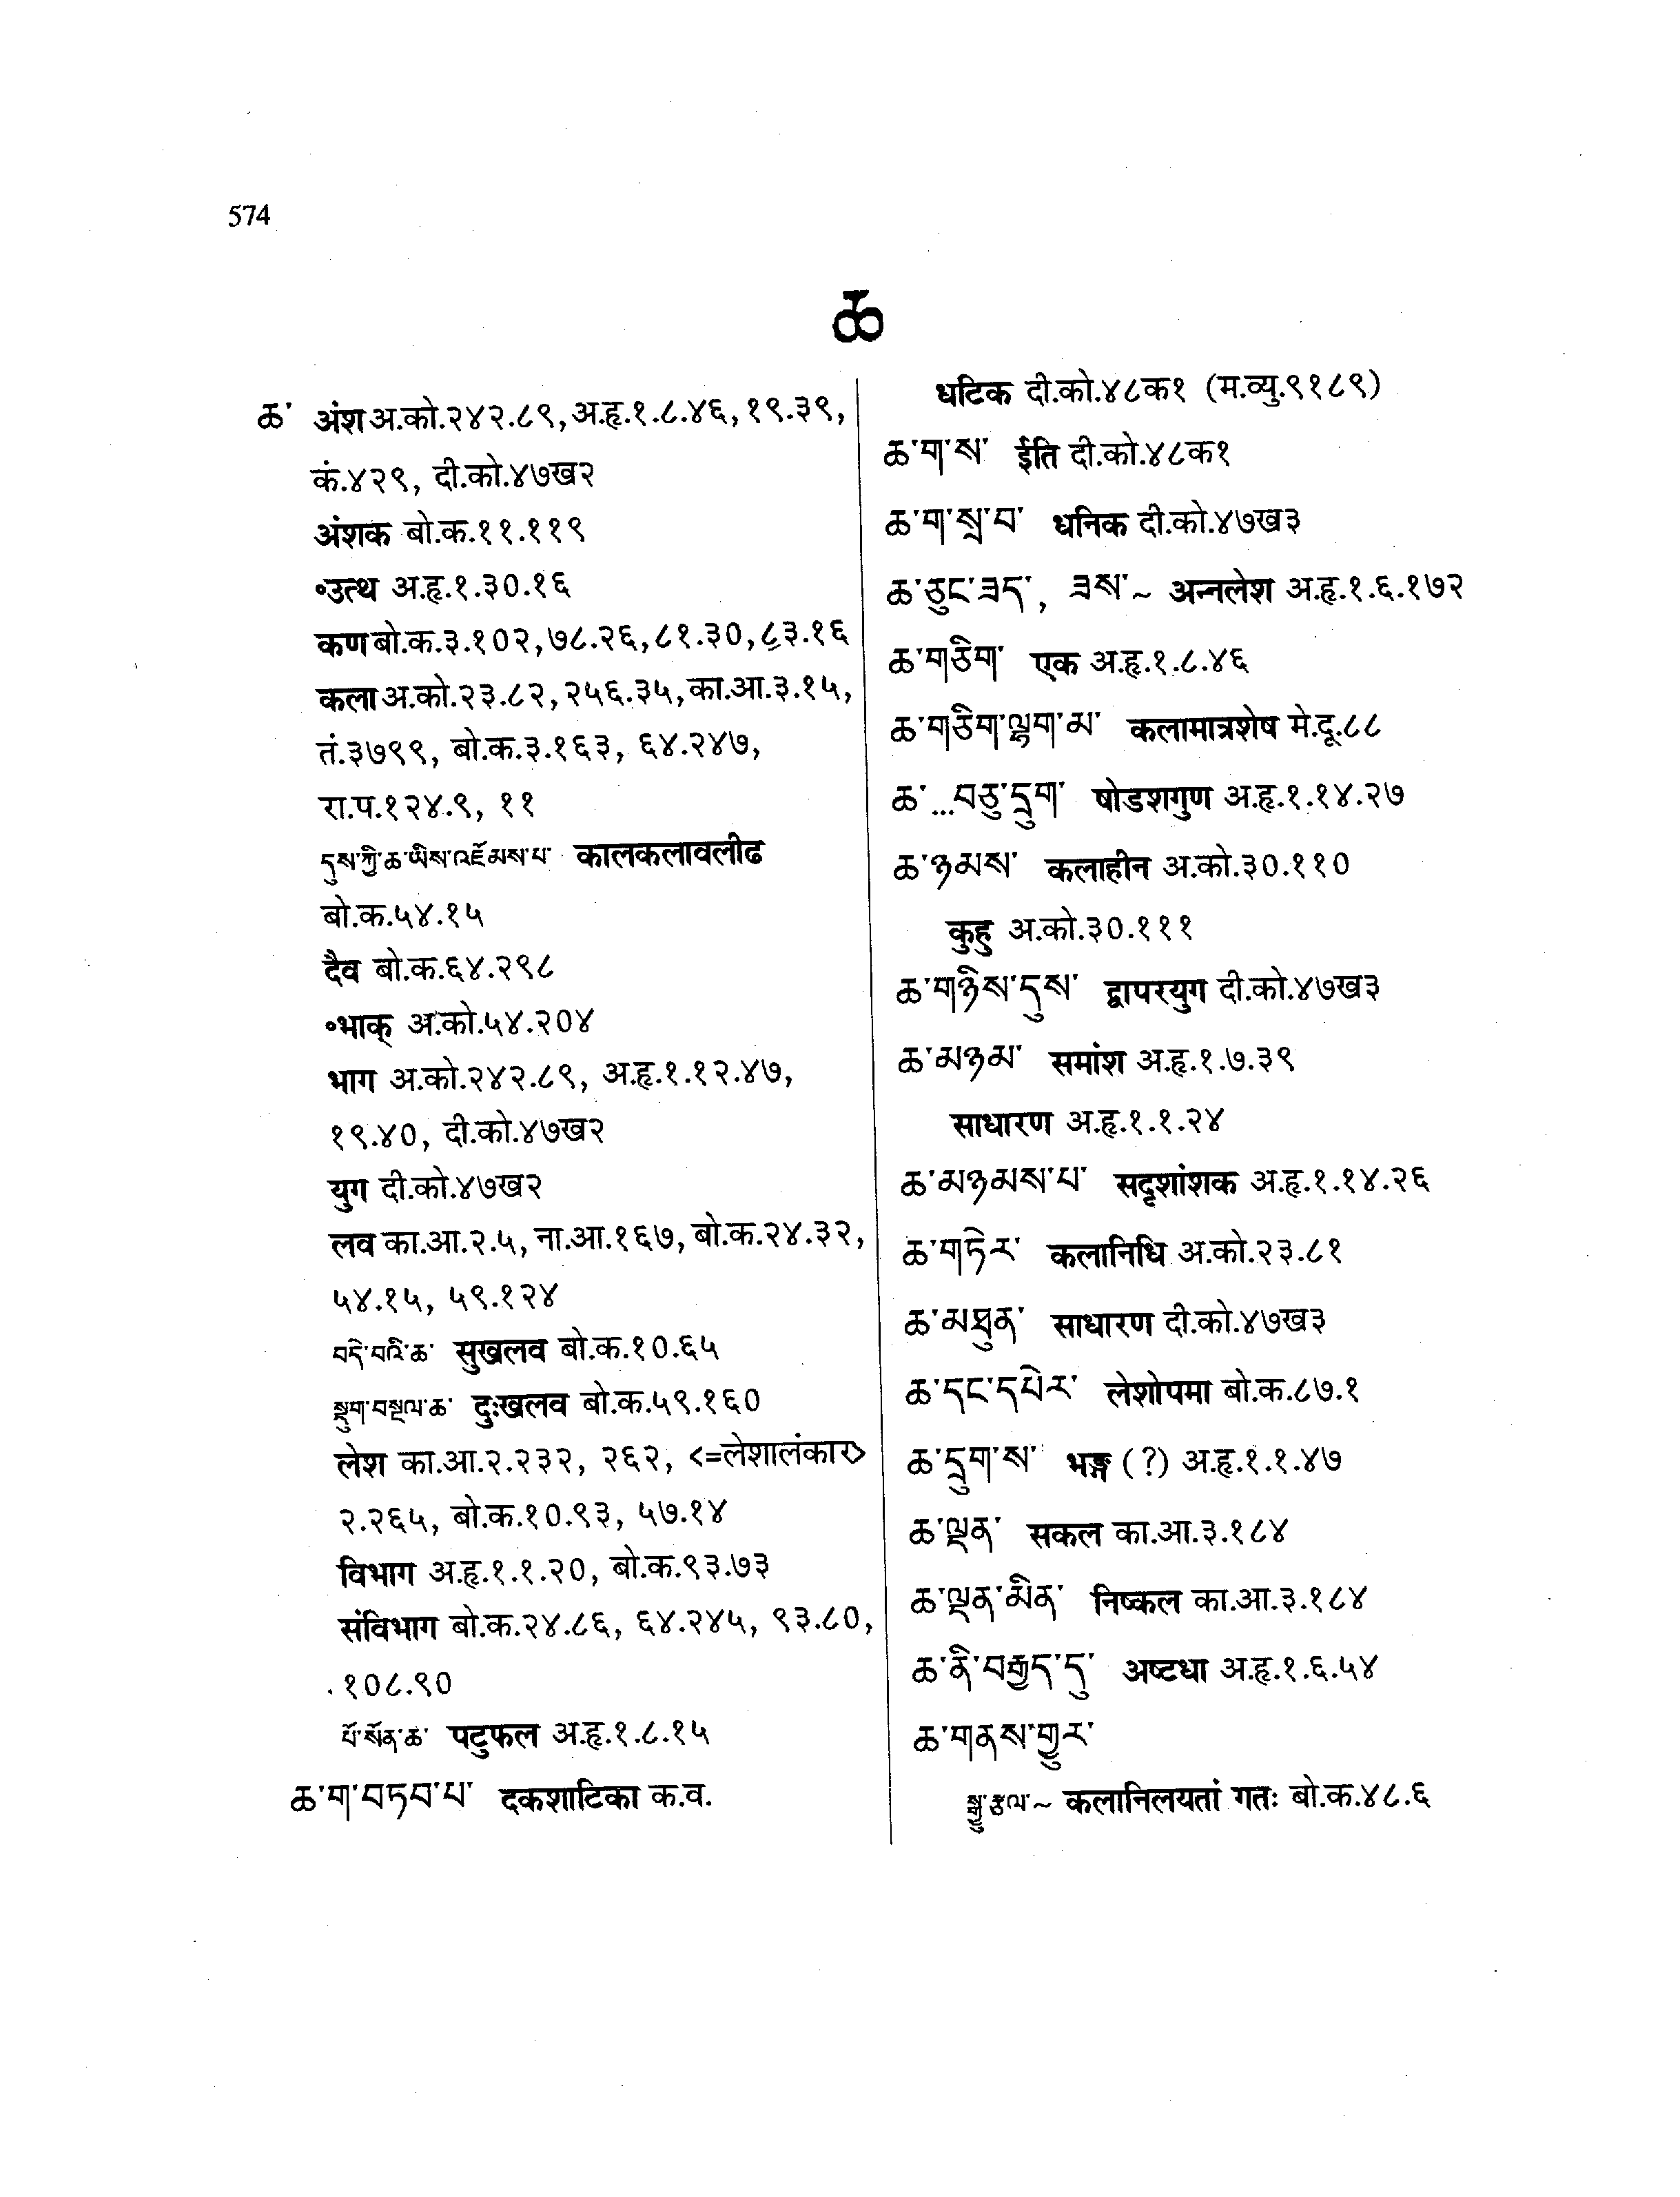 574
ཆ
ཆ་ अंश अ.को.२४२.८९, अ.हृ.१.८.४६, १९.३९,
कं.४२९, दी.को.४७ख२
अंशक बो.क.११.११९
॰उत्थ अ.हृ.१.३०.१६
कण बो.क.३.१०२, ७८.२६, ८१.३०, ८३.१६
कला अ.को.२३.८२, २५६.३५, का.आ.३.१५,
तं.३७९९, बो.क.३.१६३, ६४.२४७,
रा.प.१२४.९, ११
དུས་ཀྱི་ཆ་ཡིས་འཇོམས་པ་ कालकलावलीढ
बो.क.५४.१५
दैव बो.क.६४.२९८
॰भाक् अ.को.५४.२०४
भाग अ.को.२४२.८९, अ.हृ.१.१२.४७,
१९.४०, दी.को.४७ख२
युग दी.को.४७ख२
लव का.आ.२.५, ना.आ.१६७, बो.क.२४.३२,
५४.१५, ५९.१२४
བདེ་བའི་ཆ་ सुखलव बो.क.१०.६५
སྡུག་བསྔལ་ཆ་ दुःखलव बो.क.५९.१६०
लेश का.आ.२.२३२, २६२, <=लेशालंकार>
२.२६५, बो.क.१०.९३, ५७.१४
विभाग अ.हृ.१.१.२०, बो.क.९३.७३
संविभाग बो.क.२४.८६, ६४.२४५, ९३.८०,
१०८.९०
པོ་སོན་ཆ་ पटुफल अ.हृ.१.८.१५
ཆ་ག་བཏབ་པ་ दकशाटिका क.व.
धटिक दी.को.४८क१ (म.व्यु.९१८९)
ཆ་ག་ས་ ईति दी.को.४८क१
ཆ་ག་སྲ་བ་ धनिक दी.को.४७ख३
ཆ་ཅུང་ཟད་, ཟས་~ अन्नलेश अ.हृ.१.६.१७२
ཆ་གཅིག་ एक अ.हृ.१.८.४६
ཆ་གཅིག་ལྷག་མ་ कलामात्रशेष मे.दू.८८
ཆ་...བཅུ་དྲུག་ षोडशगुण अ.हृ.१.१४.२७
ཆ་ཉམས་ कलाहीन अ.को.३०.११०
कुहु अ.को.३०.१११
ཆ་གཉིས་དུས་ द्वापरयुग दी.को.४७ख३
ཆ་མཉམ་ समांश अ.हृ.१.७.३९
साधारण अ.हृ.१.१.२४
ཆ་མཉམས་པ་ सदृशांशक अ.हृ.१.१४.२६
ཆ་གཏེར་ कलानिधि अ.को.२३.८१
ཆ་མཐུན་ साधारण दी.को.४७ख३
ཆ་དང་དཔེར་ लेशोपमा बो.क.८७.१
ཆ་དྲུག་ས་ भङ्ग (?) अ.हृ.१.१.४७
ཆ་ལྡན་ सकल का.आ.३.१८४
ཆ་ལྡན་མིན་ निष्कल का.आ.३.१८४
ཆ་ནི་བརྒྱད་དུ་ अष्टधा अ.हृ.१.६.५४
ཆ་གནས་གྱུར་
སྒྱུ་རྩལ་~ कलानिलयतां गतः बो.क.४८.६